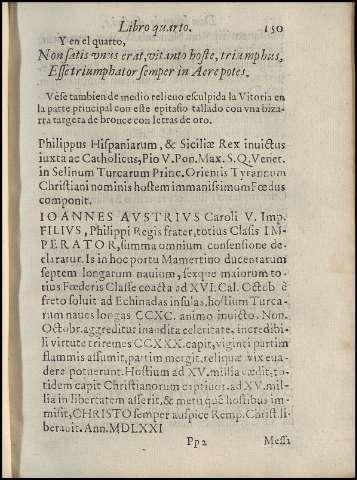 Libro quarto. 150
Y en el quarto,
Non satis vnus erat, victo hoste, triumphus,
Esse triumphator semper in Aere potes.
Vése tambien de medio relieuo esculpida la Vitoria en
la parte principal con este epitafio tallado con vna biza
rra targeta de bronce con letras de oro.
Philippus Hispaniarum, & Siciliæ Rex inuictus
iuxta ac Catholicus, Pio V. Pon. Max. S.Q. Venet.
in Selinum Turcarum Princ. Orientis Tyrannum
Christiani nominis hostem immanissimum Fœdus
componit.
IOANNES AVSTRIVS Caroli V. Imp.
FILIVS, Philippi Regis frater, totius Clasis IM-
PERATOR, summa omnium consensione de-
claratur. Is in hoc portu Mamertino ducentarum
septem longarum nauium, sexque maiorum to-
tius Fœderis Classe coacta ad XVI. Cal. Octob. è
freto soluit ad Echinadas insulas, hostium Turca-
rum naues longas CCXC. animo inuicto. Non.
Octobr. aggreditur inaudita celeritate, incredibi-
li virtute triremes CCXXX. capit, viginti partim
flammis assumit, partim mergit, reliquæ vix eua-
dere potuerunt. Hostium ad XV. millia cædit, to-
tidem capit Christianorum captiuor. ad XV. mil-
lia in libertatem asserit, & metu quē hostibus im-
misit, CHRISTO semper auspice Remp. Christ. li-
berauit. Ann. MDLXXI
Pp 2 Messi